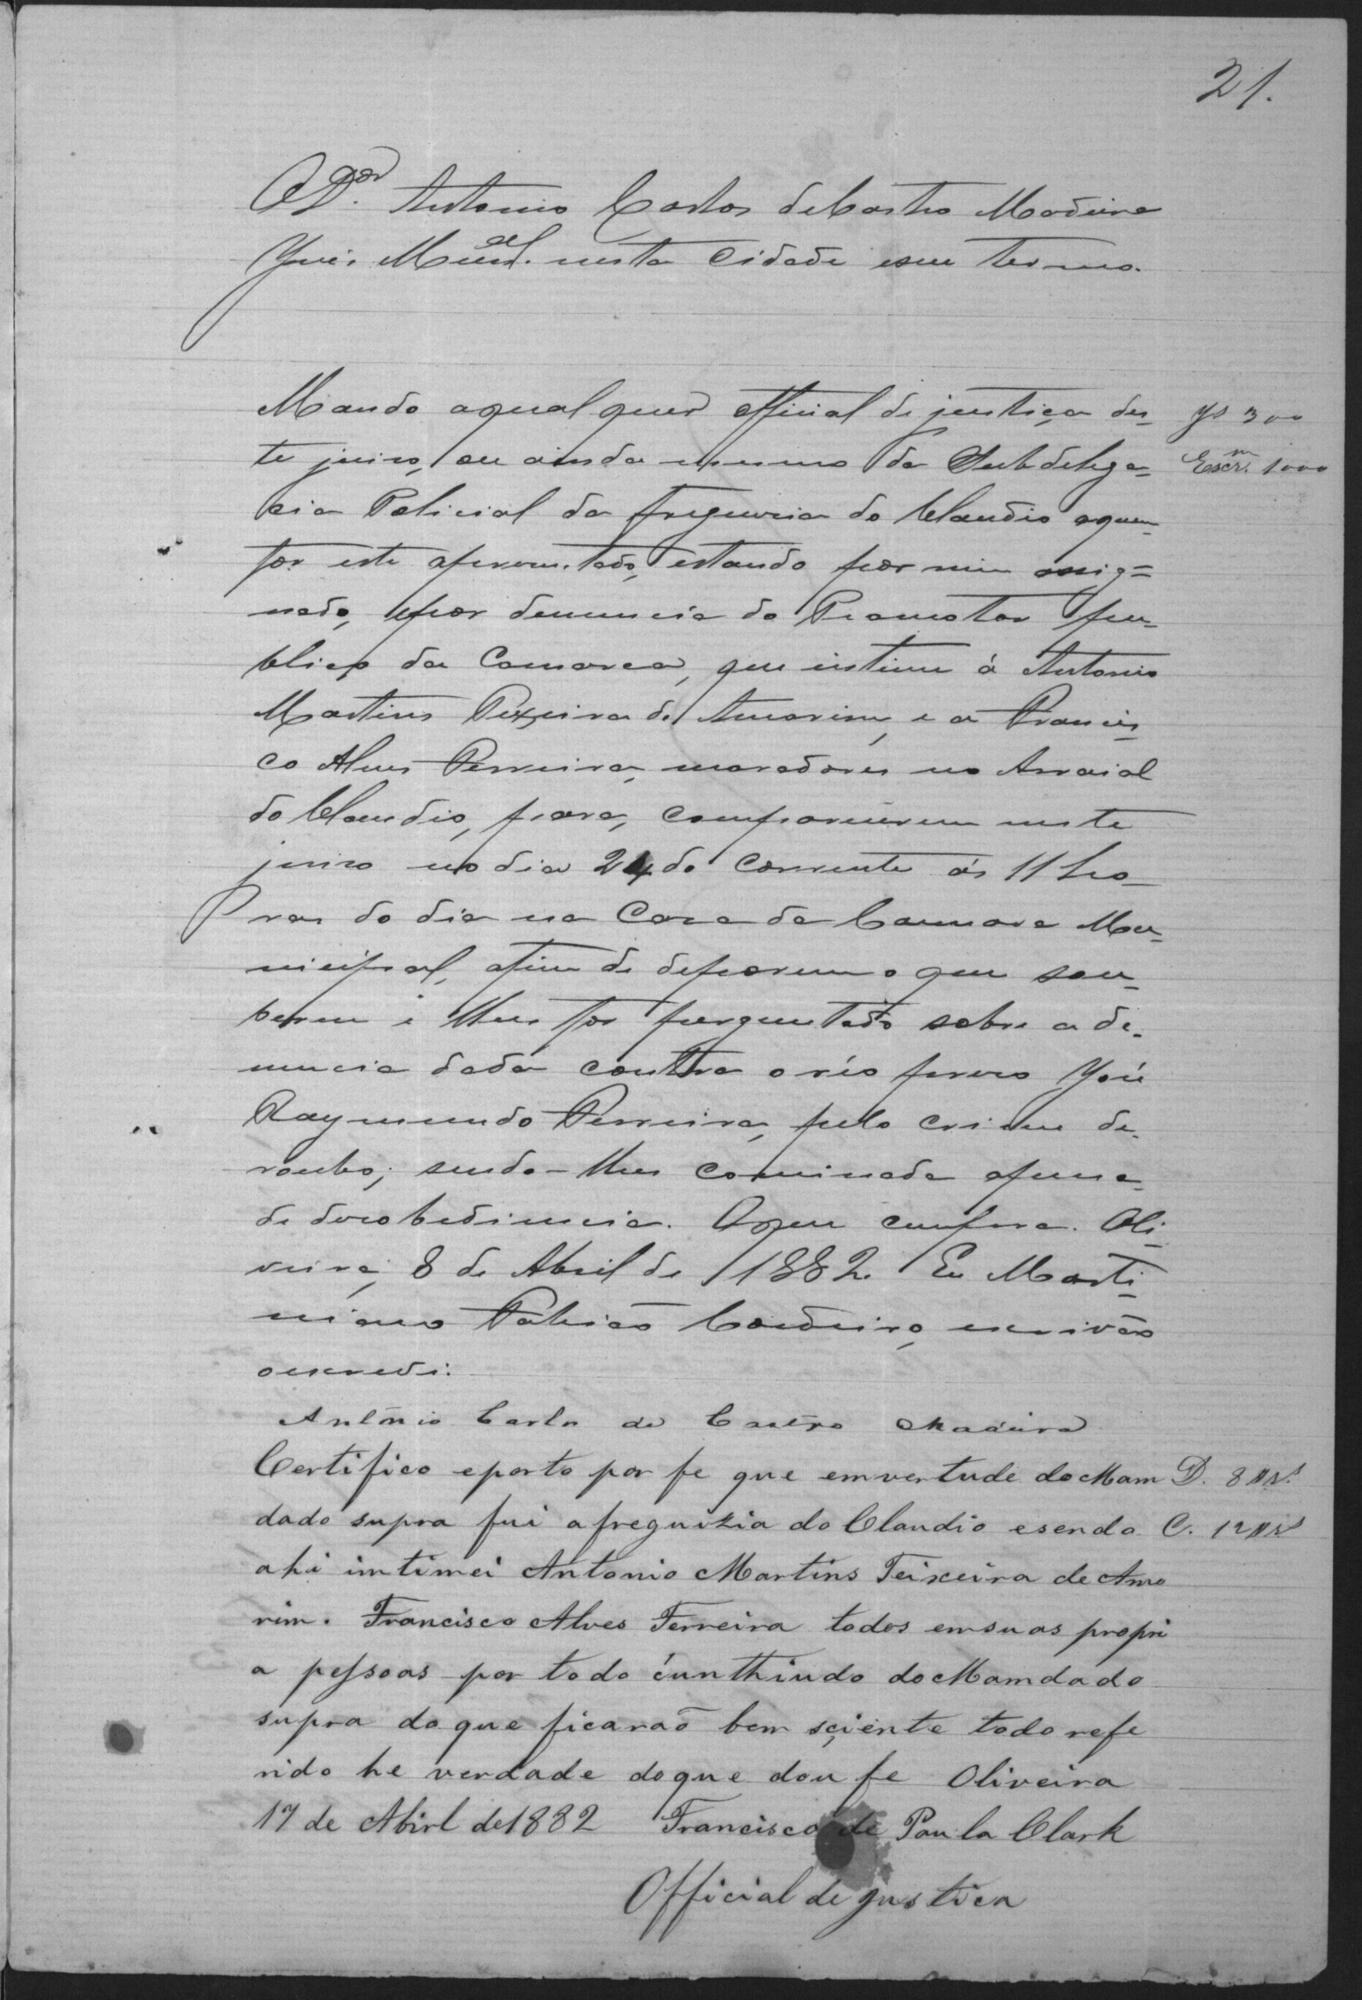 21.
O Dor. Antonio Carlos de Castro Madeira
Juis Munal. nesta Cidade eseu termo.
Mando aqual quer official de justiça des-
te juiso, ou ainda mesmo da Subdelega-
cia Policial da freguesia do Claudio aquem
for este apresentado, estando por mim assig=
nado, e por denuncia do Promotor pu-
blico da Comarca, que intime á Antonio
Martins Teixeira de Amorim, e a Francis-
co Alves Ferreira, moradores no Arraial
do Claudio, para, comparecerem neste
juiso no dia 24 do corrente ás 11 ho-
ras do dia na Casa da Camara Mu-
nicipal, afim de deporem o que sou-
berem e lhes for perguntado sobre a de-
nuncia dada contra o réo preso José
Raymundo Ferreira, pelo crime de
roubo; sendo-lhes cominada apena
de desobediencia. Oque cumpra. Oli-
veira, 8 de Abril de 1882. Eu Marti-
niano Patricio Cordeiro, escrivão
oescrevi.
Js 300
Escr.m 1000
Antônio Carlos de Castro Madeira
Certifico eporto por fe que emvertude doMam
dado supra fui afreguizia do Claudio esendo
ahi imtimei Antonio Martins Teixeira de Amo
rim. Francisco Alves Ferreira todos emsuas propri
a pessoas por todo cunthiudo doMamdado
supra do que ficaraõ bem sciente todo refe
rido he verdade doque dou fe Oliveira
17 de Abirl de 1882 Francisco de Paula Clark
Official de Justica
D. 8
C. 12